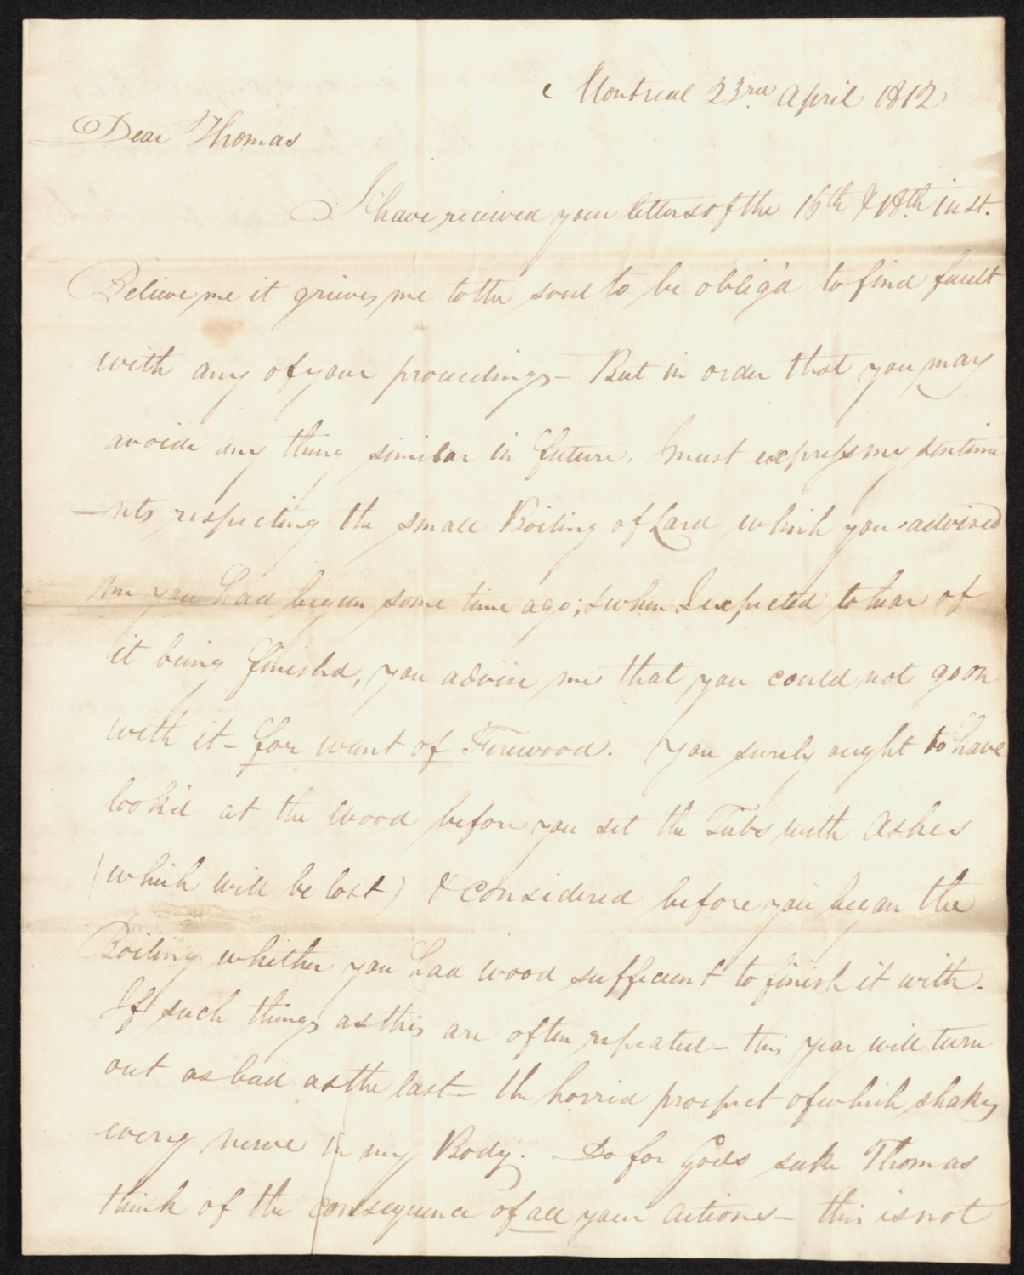 Montreal 23rd April 1812
Dear Thomas
I have received your letters of the 16th & 18th inst.
Believe me it grieves me to the soul to be oblig'd to find fault
with any of your proceedings - But in order that you may
avoid any thing similar in future, I must express my sentime
-nts respecting the small Boiling of Lard which you advised
me you had begun some time ago; & when I expected to hear of
it being finish'd, you advise me that you could not go on
with it - for want of Firewood. You surely ought to have
look'd at the wood before you set the Tubs with Ashes
(which will be lost) & considered before you began the
Boiling whether you had wood sufficient to finish it with.
If such things as this are often repeated - this year will turn
out as bad as the last - the horrid prospect of which shakes
every nerve in my Body. - Do for Gods sake Thomas
think of the consequence of all your actions - this is not